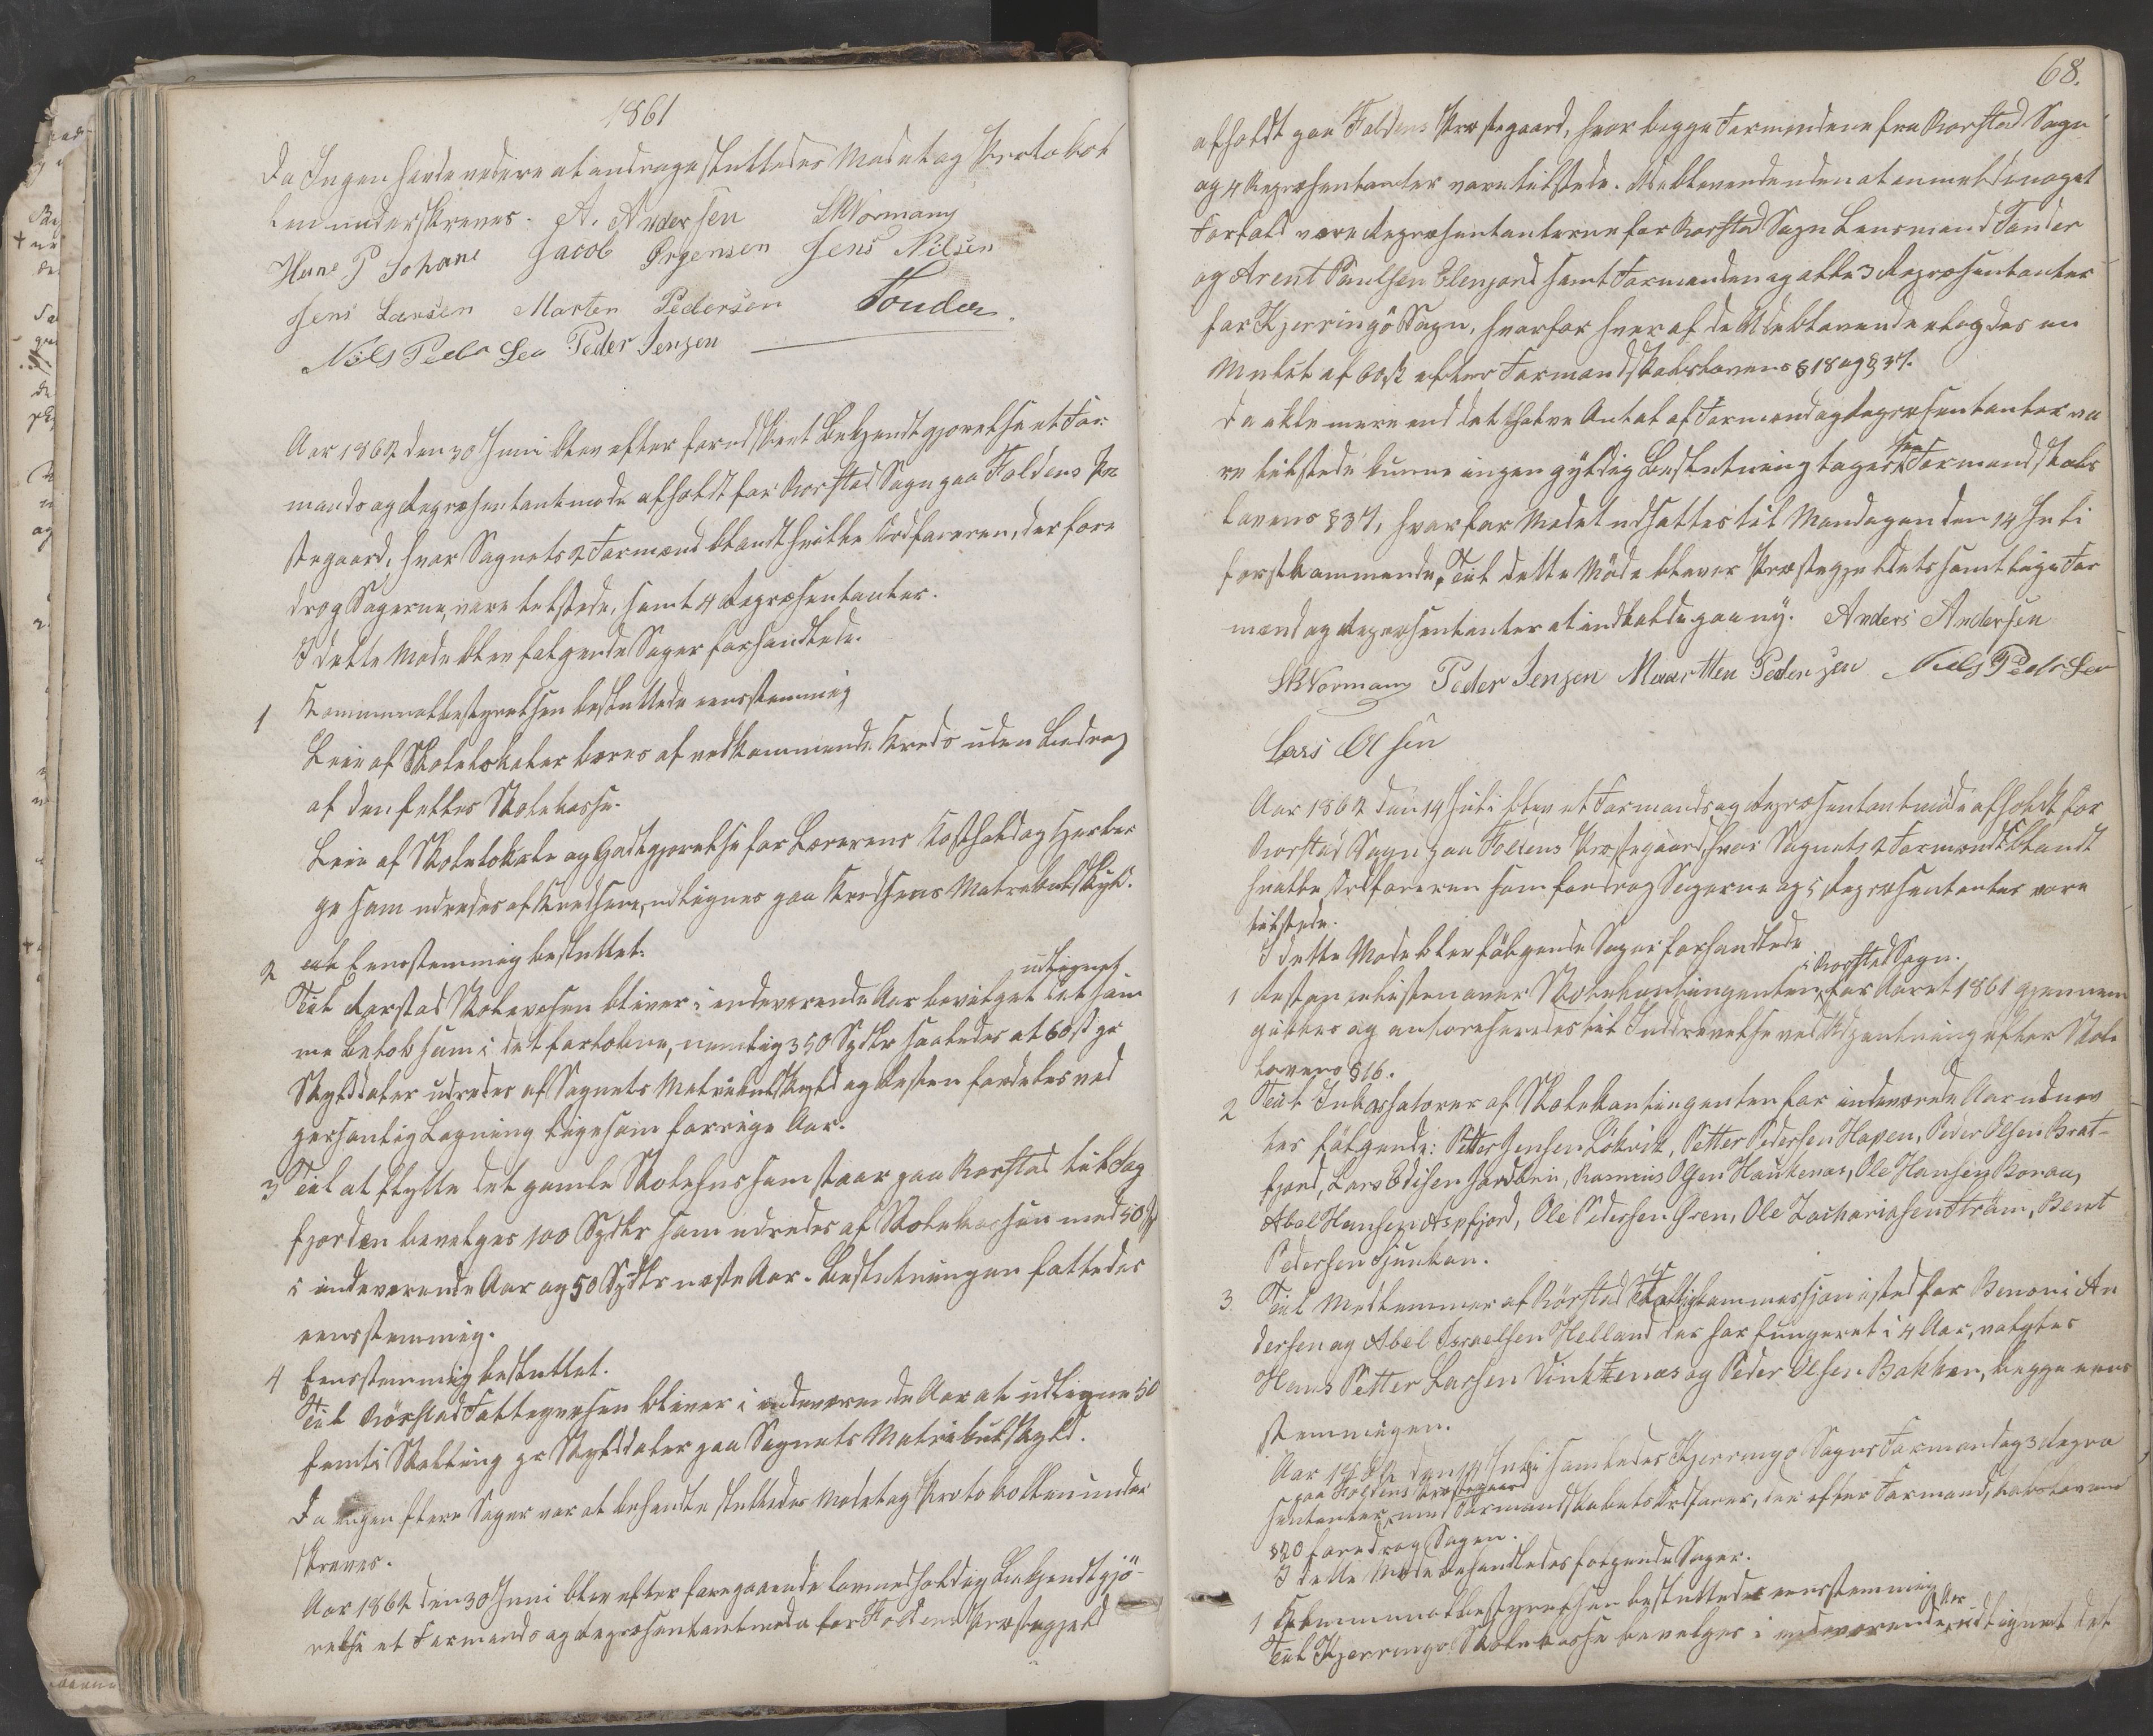 1861
Da Ingen havde videre at andrage sluttedes Mødet og Protokol
len underskreves. A. Andersen SANormann
Hans P Johans JacobØrgensen Jens Nilsen
Jens Larsen Morten Pedersen Tonder.
Niels Peder Sen Peder Jensen
Aar 1862 den 30 Juni blev efter forudskeet Bekjendtgjørelse et For
mands og Repræsentantmøde afholdt for Rørstad Sogn paa Foldens Præ
stegaard, hvor Sognets 2 Formænd blandt hvilke Ordføreren, der fore
drog Sagerne, vare tilstede, samt 4 Repræsentanter.
I dette Møde blev følgende Sager forhandlede.
1 Kommunalbestyrelsen besluttede eensstemmig
Leie af Skolelokaler bæres af vedkommende Kreds uden Bidrag
af den fælles Skolekasse.
Leie af Skolelokale og Godtgjørelse for Lærerens Kosthold og Herber
ge som udredes af Kredsene, udlignes paa Kredsens Matrikulskyld.
2 Eensstemmig besluttet.
udlignet
Til Rørstad Skolevæsen bliver i indeværende Aar bevilget det sam
me Beløb som i det forløbne, nemlig 350 Spdlr saaledes at 60 ß pr
Skylddaler udredes af Sognets Matrikulskyld og Resten fordeles ved
personlig Ligning ligesom forrige Aar.
3 Til at flytte det gamle Skolehus som staar paa Rørstad til Lag
fjorden bevilges 100 Spdlr som udredes af Skolekassen med 50 Spd
i indeværende Aar og 50 Spdlr næste Aar. Beslutningen fattedes
eensstemmig.
4 Eensstemmig besluttet.
Til Rörstad Fattigvæsen bliver i indeværende Aar at udligne 50
femti Skilling pr Skylddaler paa Sognets Matrikulskyld.
Da ingen flere Sager var at behandle sluttedes Mødet og Protokollen under
skreves.
Aar 1862 den 30 Juni blev efter foregaaende lovmedholdig Bekjendtgjö-
relse et Formands og Repræsentantmøde for Foldens Præstegjeld
68.
afholdt paa Foldens Præstegaard, hvor begge Formændene fra Rørstad Sogn
og 4 Repræsentanter vare tilstede. Udeblevende uden at anmelde noget
Forfald vare Repræsentanterne for Rørstad Sogn Lensmand Tonder
og Arent Paulsen Elvenjord samt Formanden og alle 3 Repræsentanter
for Kjerringö Sogn, hvorfor hver af de Udeblevende ilagdes en
Mulct af 60 ß efter Formandskabslovens § 18 og § 37.
Da ikke mere end det halve Antal af Formænd og Repræsentanter va
re tilstede kunne ingen gyldig Beslutning tages Formandskabs
lovens § 37, hvorfor Mødet udsattes til Mandagen den 14 Juli
førstkommende. Til dette Möde bliver Præstegjeldets samtlige For
mænd og Repræsentanter at indkalde paa ny. Anders Andersen
SANormann Peder Jensen Maartten Pedersen Niels Peder Sen
Lars Olsen
Aar 1862 den 14 Juli blev et Formands og Repræsentantmøde afholdt for
Rørstad Sogn paa Foldens Præstegaard hvor Sognets 2 Formænd blandt
hvilke Ordføreren som foredrog Sagerne og 5 Repræsentanter vare
tilstede.
I dette Møde blev fölgende Sager forhandlede
i Rørstad Sogn.
1 Restancelisten over Skolekontingenten for Aaret 1861 gjennem
gikkes og autoriseredes til Inddrivelse ved Udpantning efter Skole
lovens § 16.
2 Til Inkassatorer af Skolekontingenten for indeværende Aar udnæv
tes fölgende: Petter Jensen Lökvik, Petter Pedersen Hopen, Peder Olsen Brat-
fjord, Lars Edisen Jordbru, Ramius Olsen Haukenæs, Ole Hansen Bonaa,
Abel Hansen Aspfjord, Ole Pedersen Gren, Ole Zachariasen Ström, Bent
Pedersen Sjunkan.
3. Til Medlemmer af Rörstad Fattigkommission isted for Benoni An
dersen og Abel Israelsen Helland der har fungeret i 4 Aar, valgtes
Hans Petter Larsen Vinkenæs og Peder Olsen Bakken, begge eens
stemmigen.
Aar 1862 den 14 Juli samledes Kjerringø Sogns Formand og 3 Repræ
paa Foldens Præstegaard
sentanter, med Formandskabets Ordfører, der efter Formandskabsloven
§ 20 foredrog Sagen.
I dette Møde behandledes følgende Sager.
1 Kommunalbestyrelsen besluttede eensstemmig
Aar
Til Kjerringø Skolekasse bevilges i indeværende udlignet det